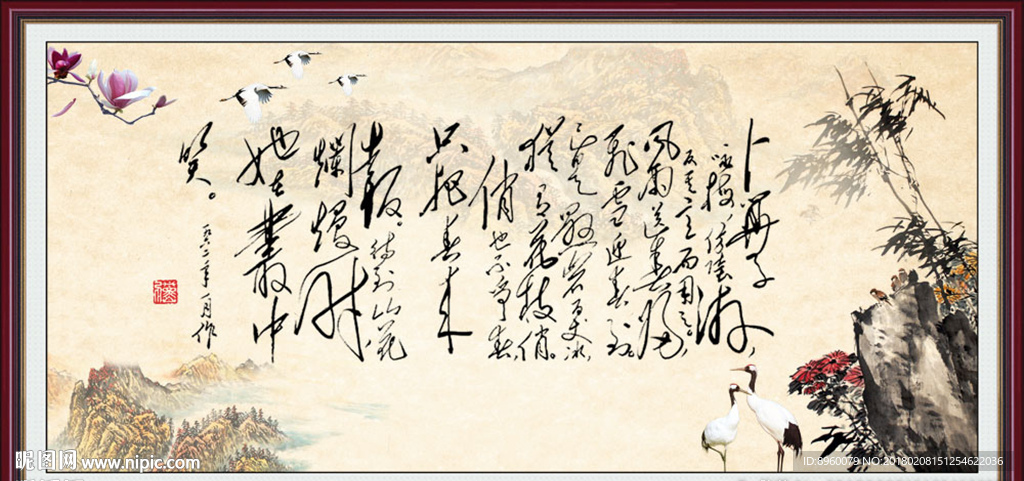 卜算子
咏梅,仿陸游,
反其意而用之。
风雨送春归,
飛雪迎春到。
已是懸崖百丈冰,
犹有花枝俏。
俏也不争春,
只把春来
報。待到山花
爛熳时
她在叢中
笑。
一九六二年一月作
昵图网 www.nipic.com
ID:8960079 NO:20180208151254622036